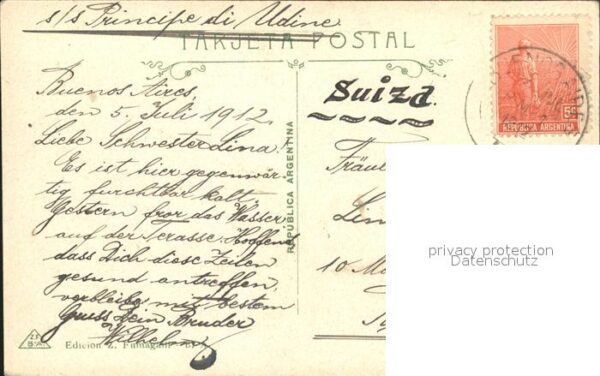 s/s Principe di Udine
TARJETA POSTAL
Buenos Aires,
den 5. Juli 1912.
Liebe Schwester Lina.
Es ist hier gegenwär-
tig furchtbar kalt.
Gestern fror das Wasser
auf der Terasse. Hoffend
dass Dich diese Zeilen
gesund antreffen,
verbleibe mit bestem
Gruss Dein Bruder
Wilhelm.
REPÚBLICA ARGENTINA
Suiza.
Fräul
Lin
10 M
5c
REPUBLICA ARGENTINA
privacy protection
Datenschutz
Edicion Z. Fumagalli